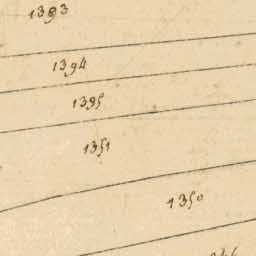 1393
1394
1395
1351
1350